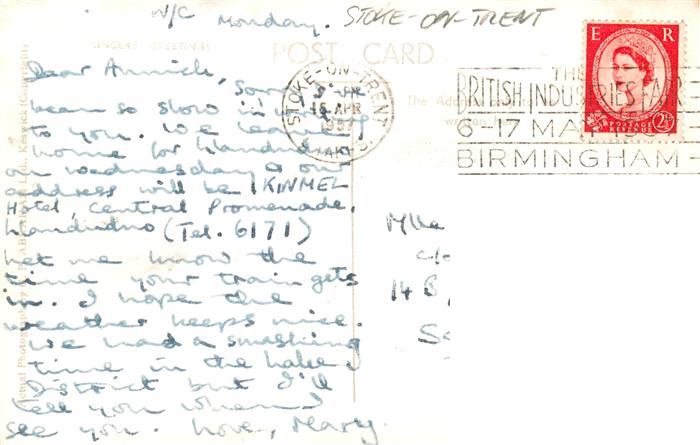 N/C Monday. STOKE-ON-TRENT
SINCERE GREETINGS
POST CARD
Dear Annick, Sorry
been so slow in
to you. We leave
home for Llandudno
on Wednesday & our
address will be KINMEL
Hotel, Central Promenade,
Llandudno (Tel. 6171)
Let me know the
time your train gets
in. I hope the
weather keeps nice.
We had a smashing
time in the Lake
District but I'll
tell you when I
see you. Love, Mary.
The Address
Mlle
c/o
14 B
STOKE-ON-TRENT
16 APR
195
STAFFS.
THE
BRITISH INDUSTRIES FAIR
6-17 MAY 19
BIRMINGHAM
E R
POSTAGE
REVENUE
2½
Actual Photography
Ltd., Keswick (Copyright)